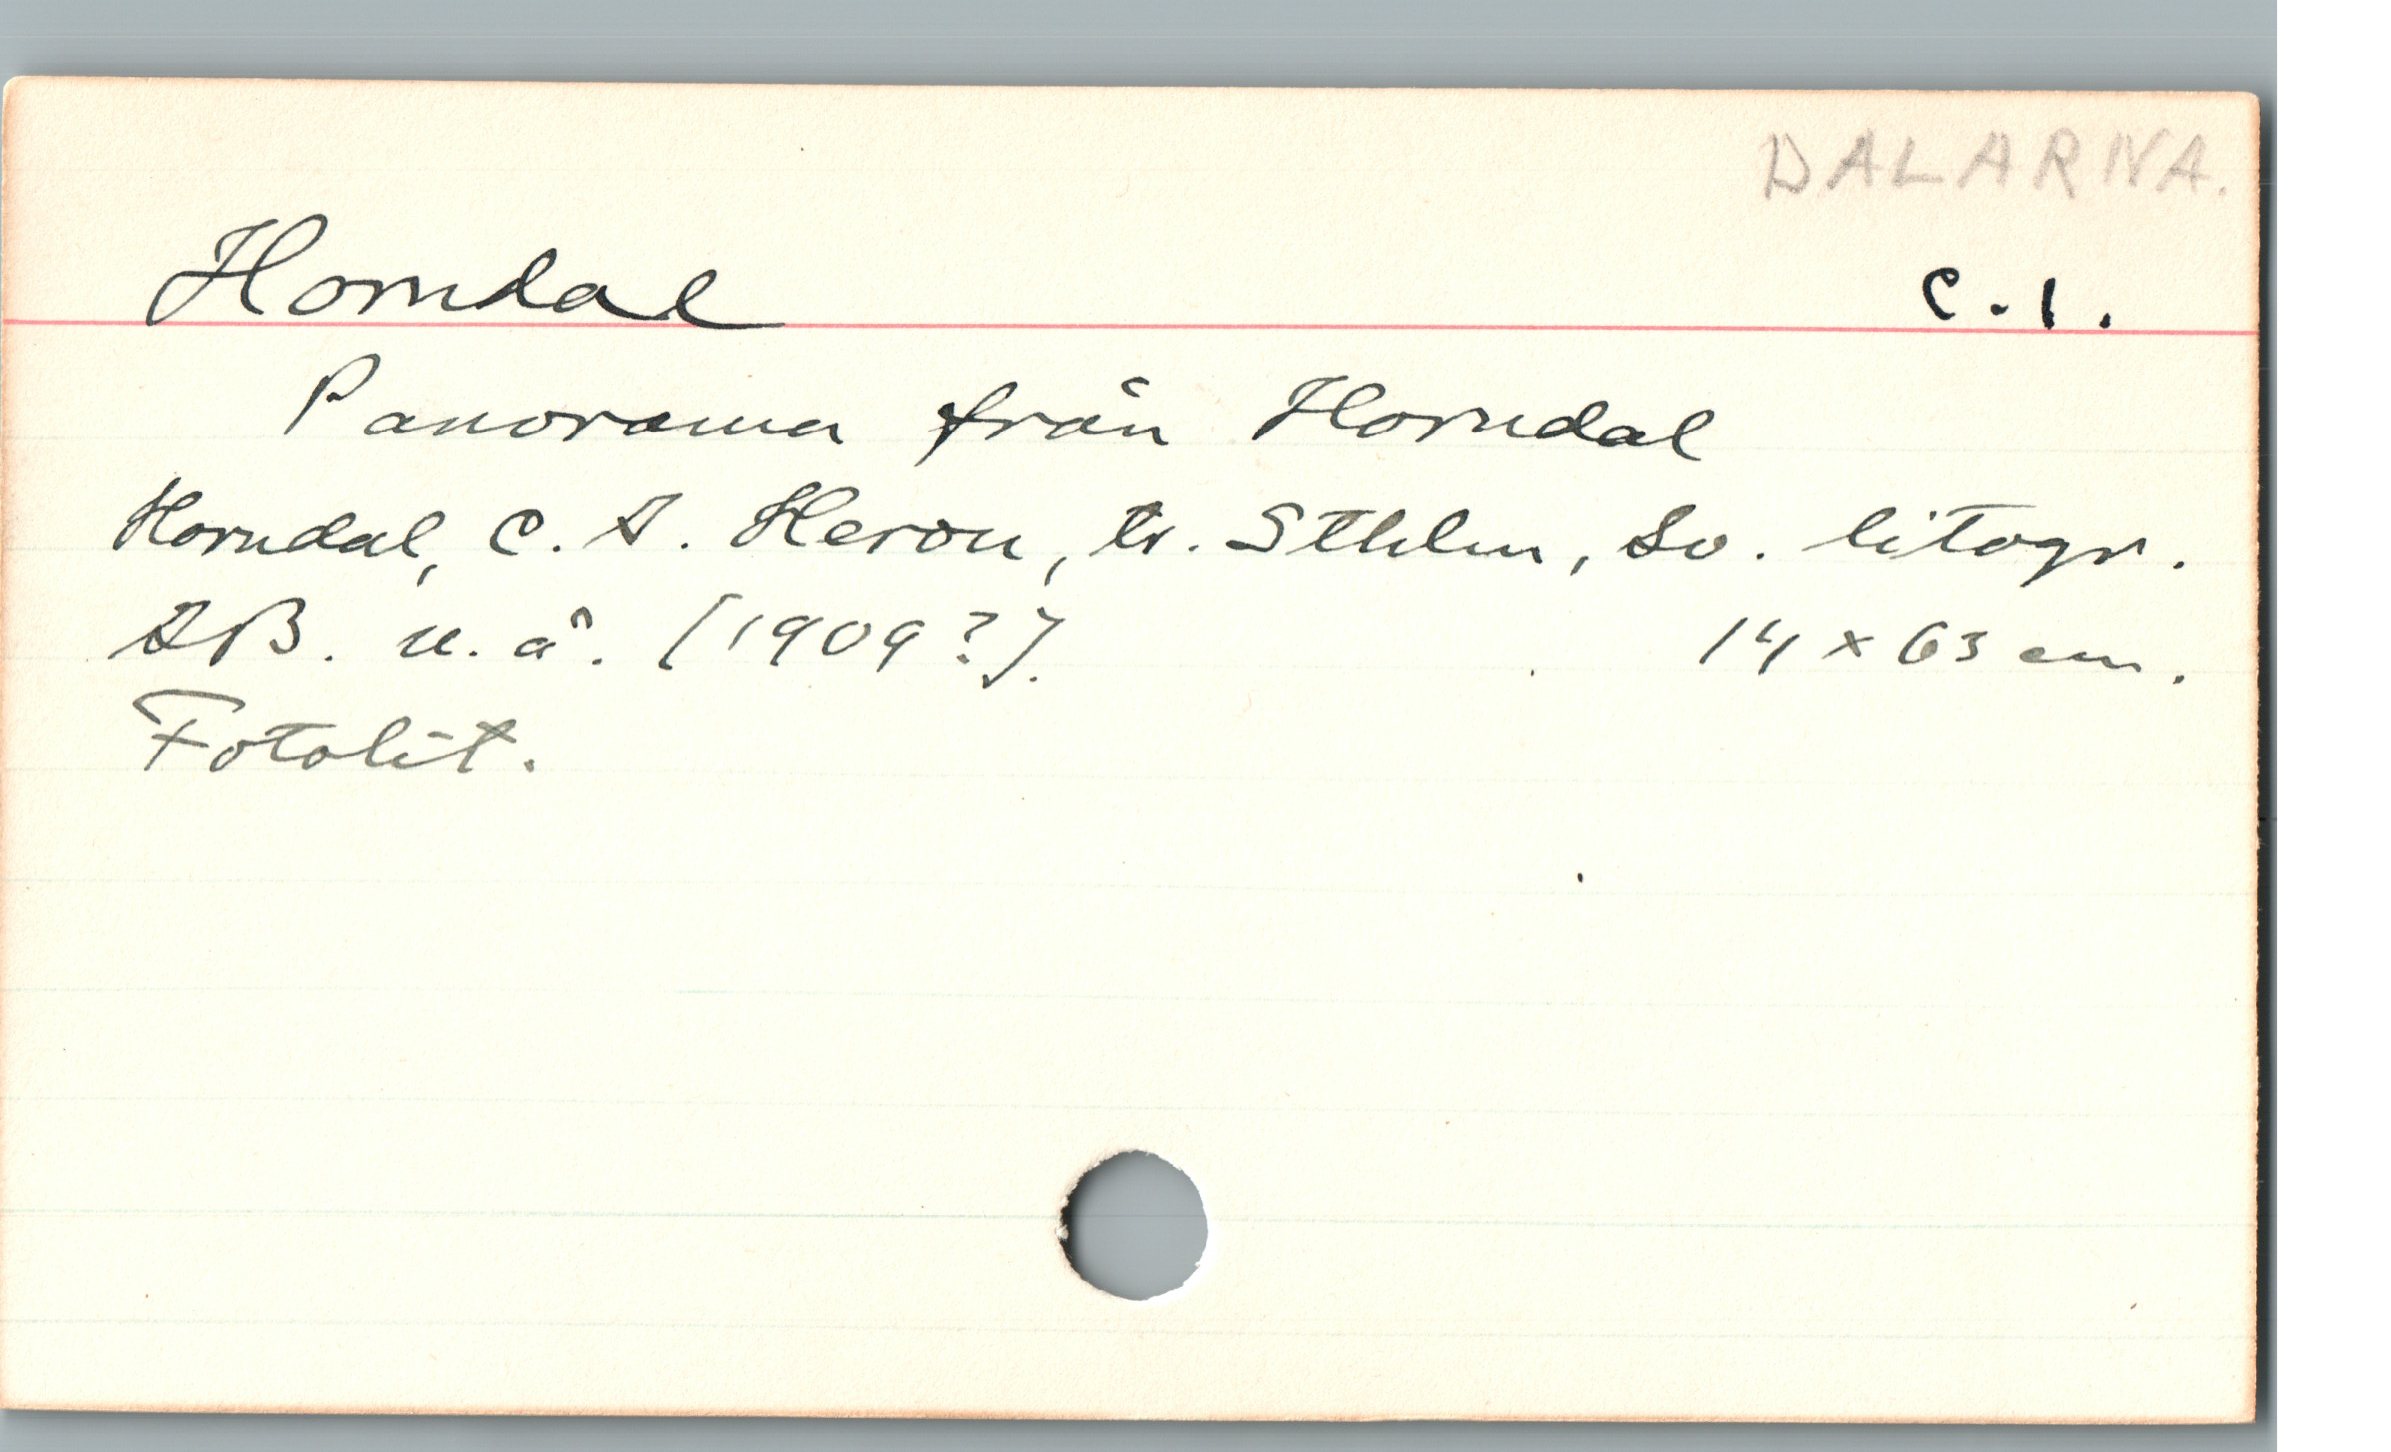 DALARNA.
Horndal C.1.
Panorama från Horndal
Horndal, C. A. Heron, tr. Sthlm, Sv. litogr.
AB. u.å. [1909?]. 14 x 63 cm.
Fotolit.